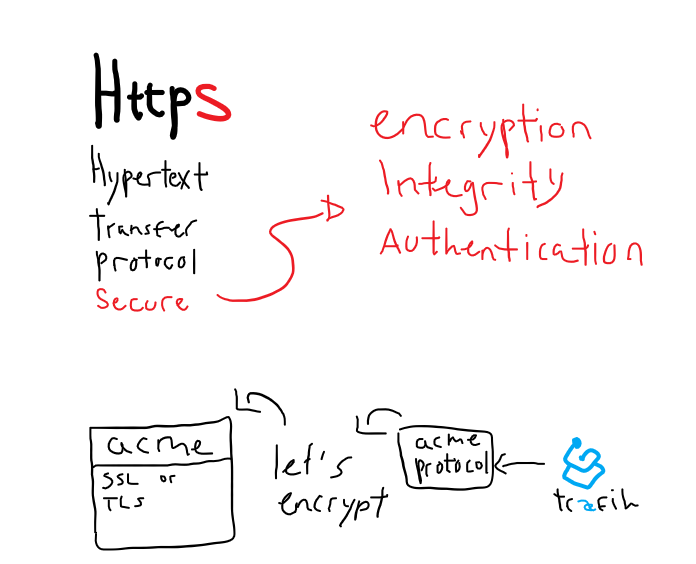 Https
Hypertext
transfer
protocol
Secure
encryption
Integrity
Authentication
acme
SSL or
TLS
let's
encrypt
acme
protocol
træfik